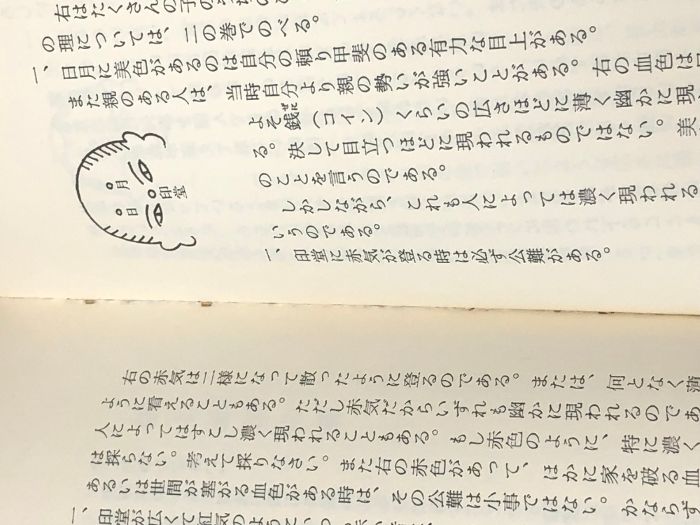 右はたくさんの子のうち
の理については、二の巻でのべる。
一、日月に美色があるのは自分の頼り甲斐のある有力な目上がある。
また親のある人は、当時自分より親の勢いが強いことがある。右の血色は
よそ銭(コイン)くらいの広さほどに薄く幽かに現
る。決して目立つほどに現われるものではない。美
のことを言うのである。
しかしながら、これも人によっては濃く現われる
いうのである。
月
日
印堂
一、印堂に赤気が登る時は必ず公難がある。
右の赤気は二様になって散ったように登るのである。または、何となく薄
ように看えることもある。ただし赤気だからいずれも幽かに現われるのであ
人によってはすこし濃く現われることもある。もし赤色のように、特に濃く
は採らない。考えて採りなさい。また右の赤色があって、ほかに家を破る血
あるいは世間が塞がる血色がある時は、その公難は小事ではない。かならず
一、印堂が広くて紅気のように